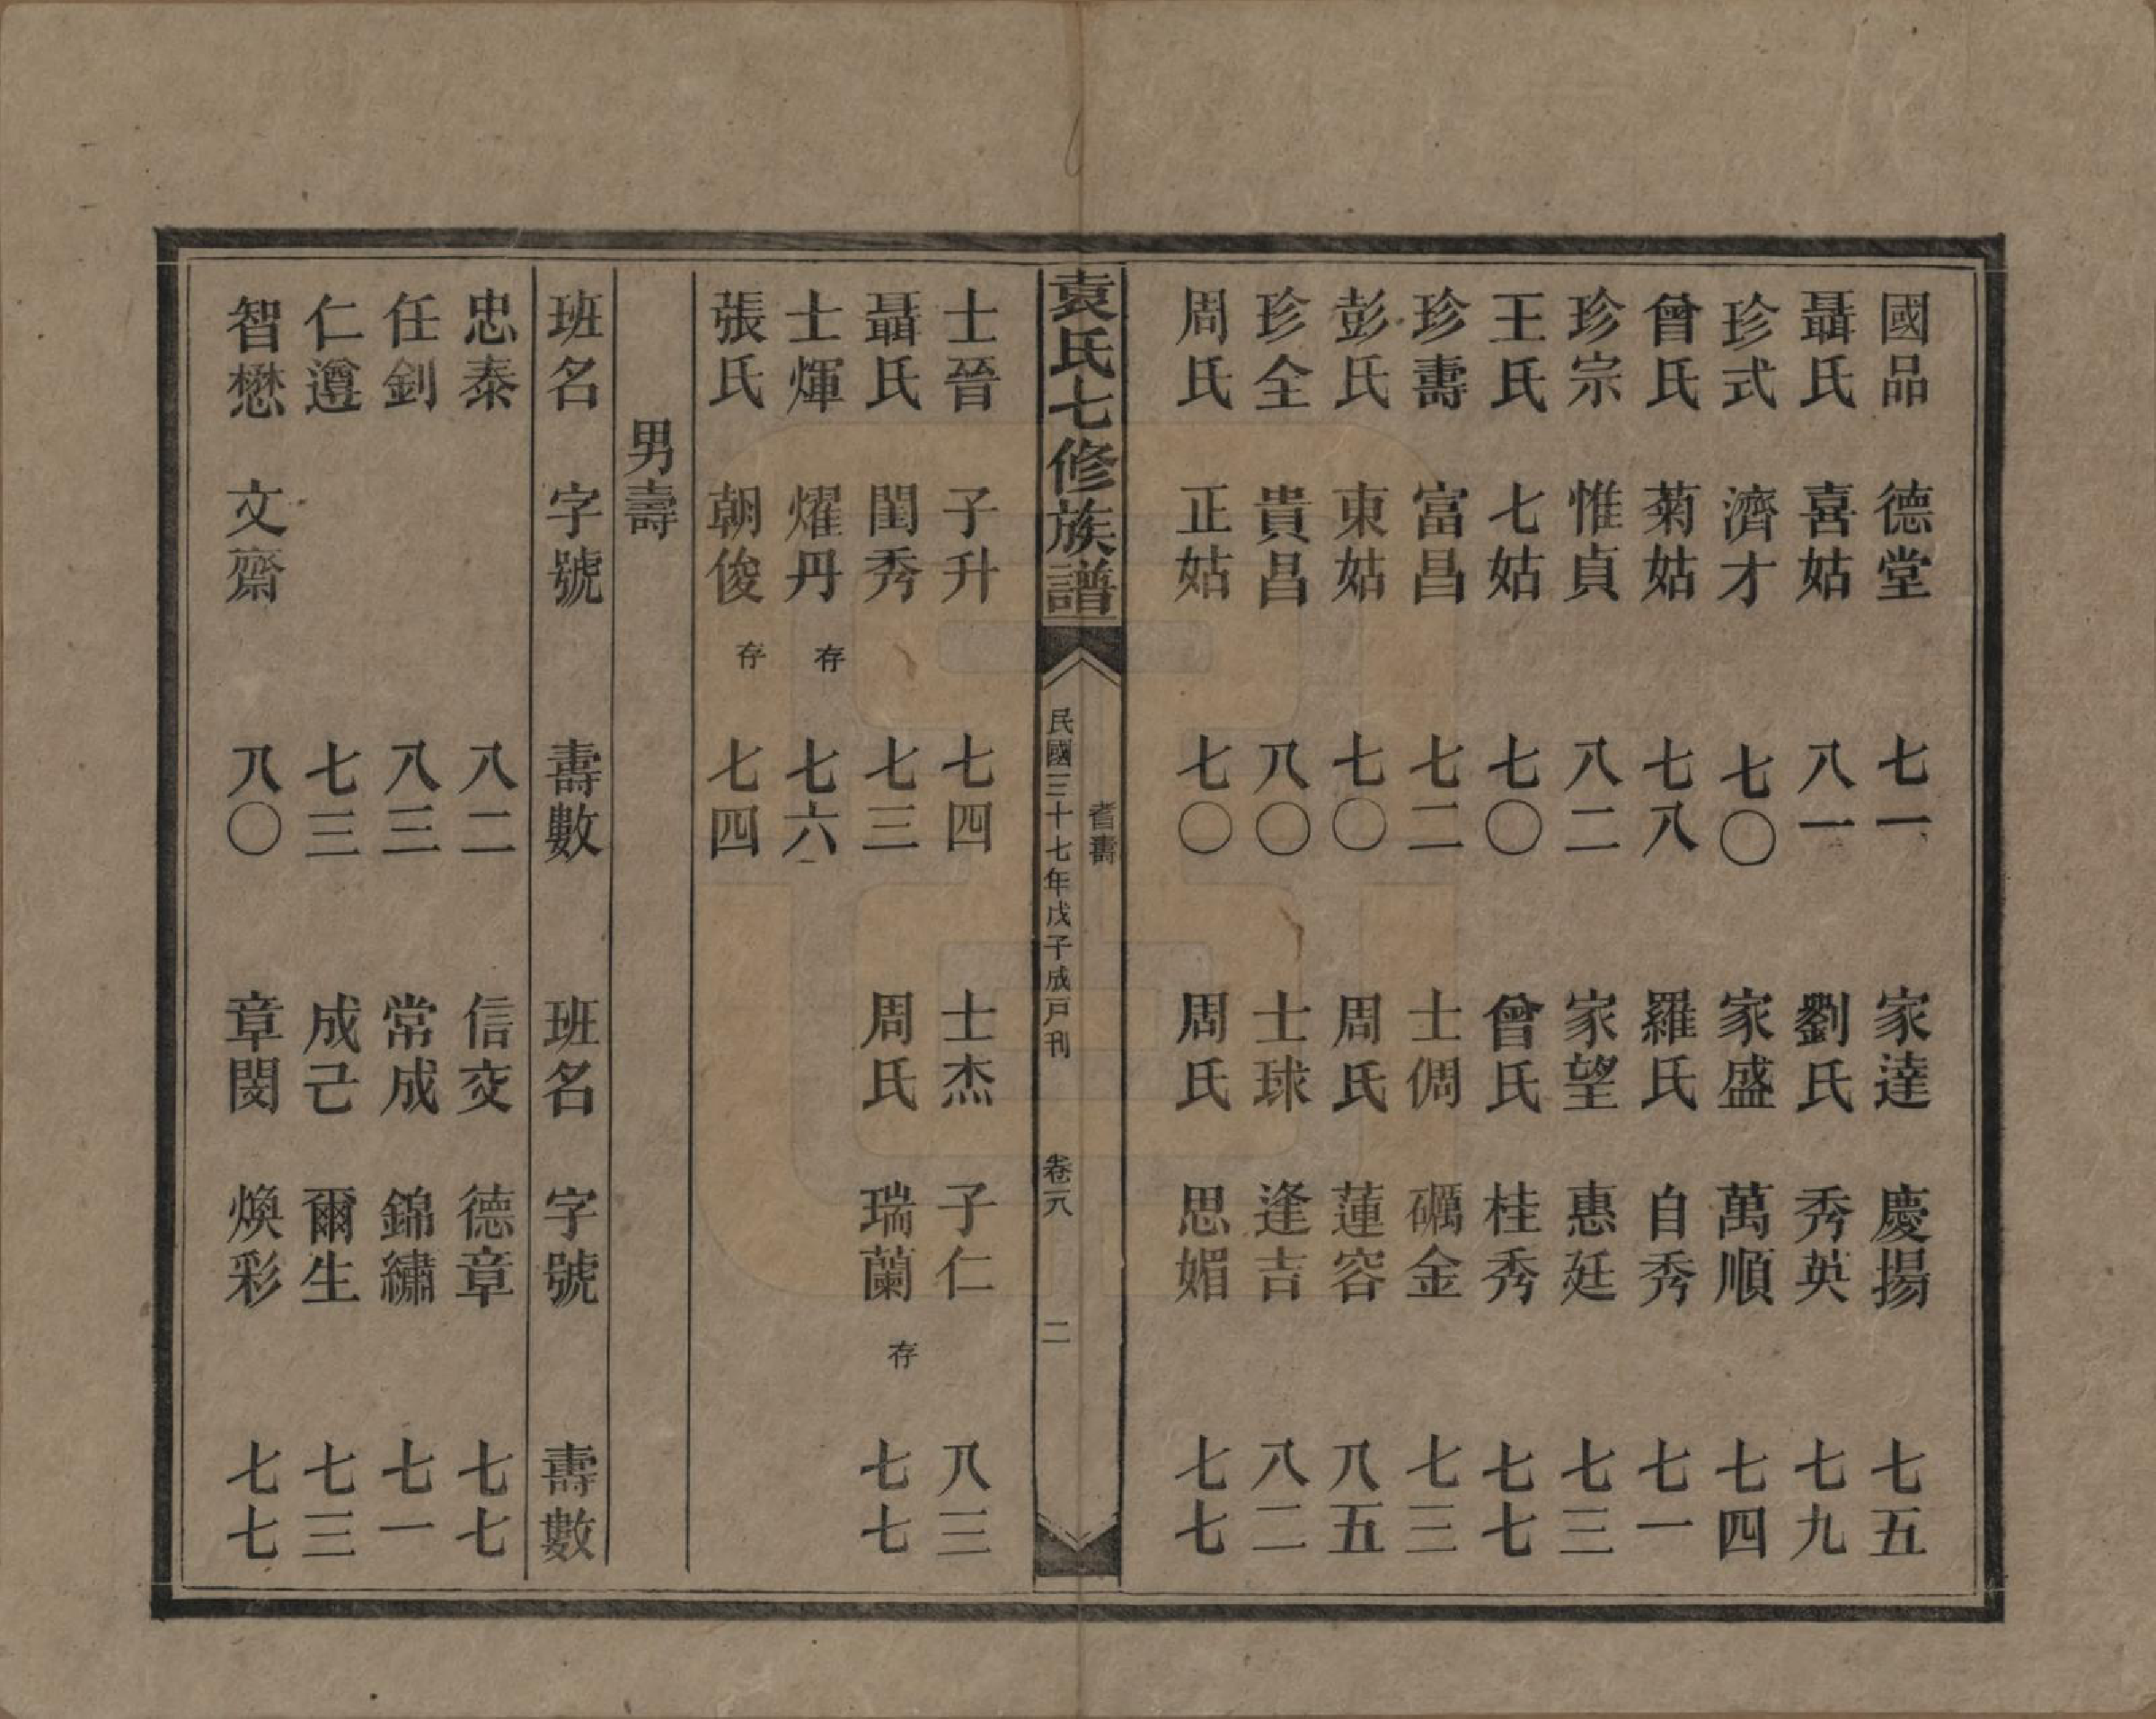 國品　德堂　七一　家達　慶揚　七五
聶氏　喜姑　八一　劉氏　秀英　七九
珍式　濟才　七〇　家盛　萬順　七四
曾氏　菊姑　七八　羅氏　自秀　七一
珍宗　惟貞　八二　家望　惠廷　七三
王氏　七姑　七〇　曾氏　桂秀　七七
珍壽　富昌　七二　士倜　礪金　七三
彭氏　東姑　七〇　周氏　蓮容　八五
珍全　貴昌　八〇　士球　逢吉　八二
周氏　正姑　七〇　周氏　思媚　七七
袁氏七修族譜
耆壽
民國三十七年戊子成戸刊　卷八　二
士晉　子升　七四　士杰　子仁　八三
聶氏　閨秀　七三　周氏　瑞蘭　存　七七
士煇　燿丹　存　七六
張氏　朝俊　存　七四
男壽
班名　字號　壽數　班名　字號　壽數
忠泰　八二　信交　德章　七七
任釗　八三　常成　錦繡　七一
仁遵　七三　成己　爾生　七三
智懋　文齋　八〇　章閔　煥彩　七七